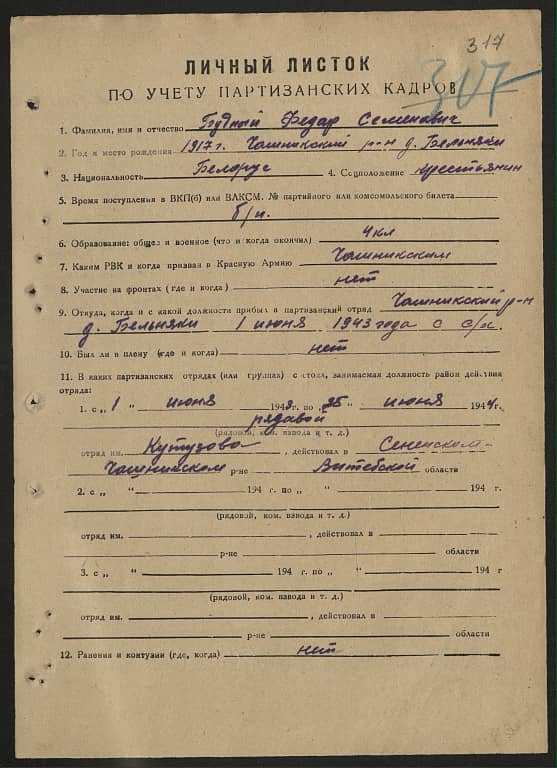 317
307
ЛИЧНЫЙ ЛИСТОК
ПО УЧЕТУ ПАРТИЗАНСКИХ КАДРОВ
1. Фамилия, имя и отчество Будный Федар Семенович
2. Год и место рождения 1917 г. Чашникский р-н д. Бельняки
3. Национальность Белорус 4. Соцположение крестьянин
5. Время поступления в ВКП(б) или ВЛКСМ. № партийного или комсомольского билета
б/п.
6. Образование: общее и военное (что и когда окончил) 4 кл
7. Каким РВК и когда призван в Красную Армию Чашникским
8. Участие на фронтах (где и когда) нет
9. Откуда, когда и с какой должности прибыл в партизанский отряд Чашникский р-н
д. Бельняки 1 июня 1943 года с с/х.
10. Был ли в плену (где и когда) нет
11. В каких партизанских отрядах (или группах) состоял, занимаемая должность район действия
отряда:
1. с „ 1 " июня 1943 г. по „ 25 " июня 1944 г.
рядавой
(рядовой, ком. взвода и т. д.)
отряд им. Кутузова, действовал в Сененском-
Чашникском р-не Витебской области
2. с „ " 194 г. по „ " 194 г.
(рядовой, ком. взвода и т. д.)
отряд им. , действовал в
р-не области
3. с „ " 194 г. по „ " 194 г
(рядовой, ком. взвода и т. д.)
отряд им. , действовал в
р-не области
12. Ранения и контузии (где, когда) нет